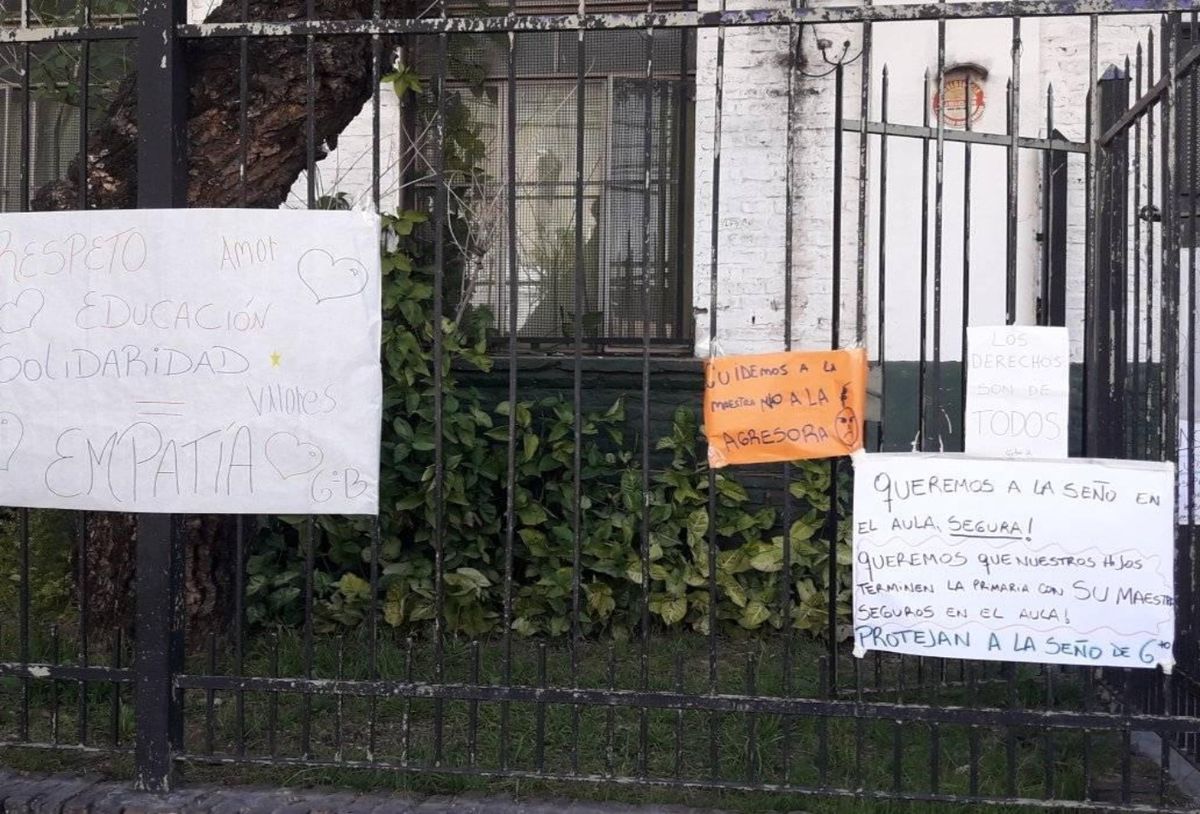 RESPETO
AMOr
EDUCACIÓN
SOLIDARIDAD
VAlOrES
=
EMPATÍA
6=B
CUIDEMOS A LA
MAESTRA NO A LA
AGRESORA
LOS
DERECHOS
SON DE
TODOS
QUEREMOS A LA SEÑO EN
EL AULA, SEGURA!
QUEREMOS QUE NUESTROS HIJOS
TERMINEN LA PRIMARIA CON SU MAESTRA
SEGUROS EN EL AULA!
PROTEJAN A LA SEÑO DE 6to